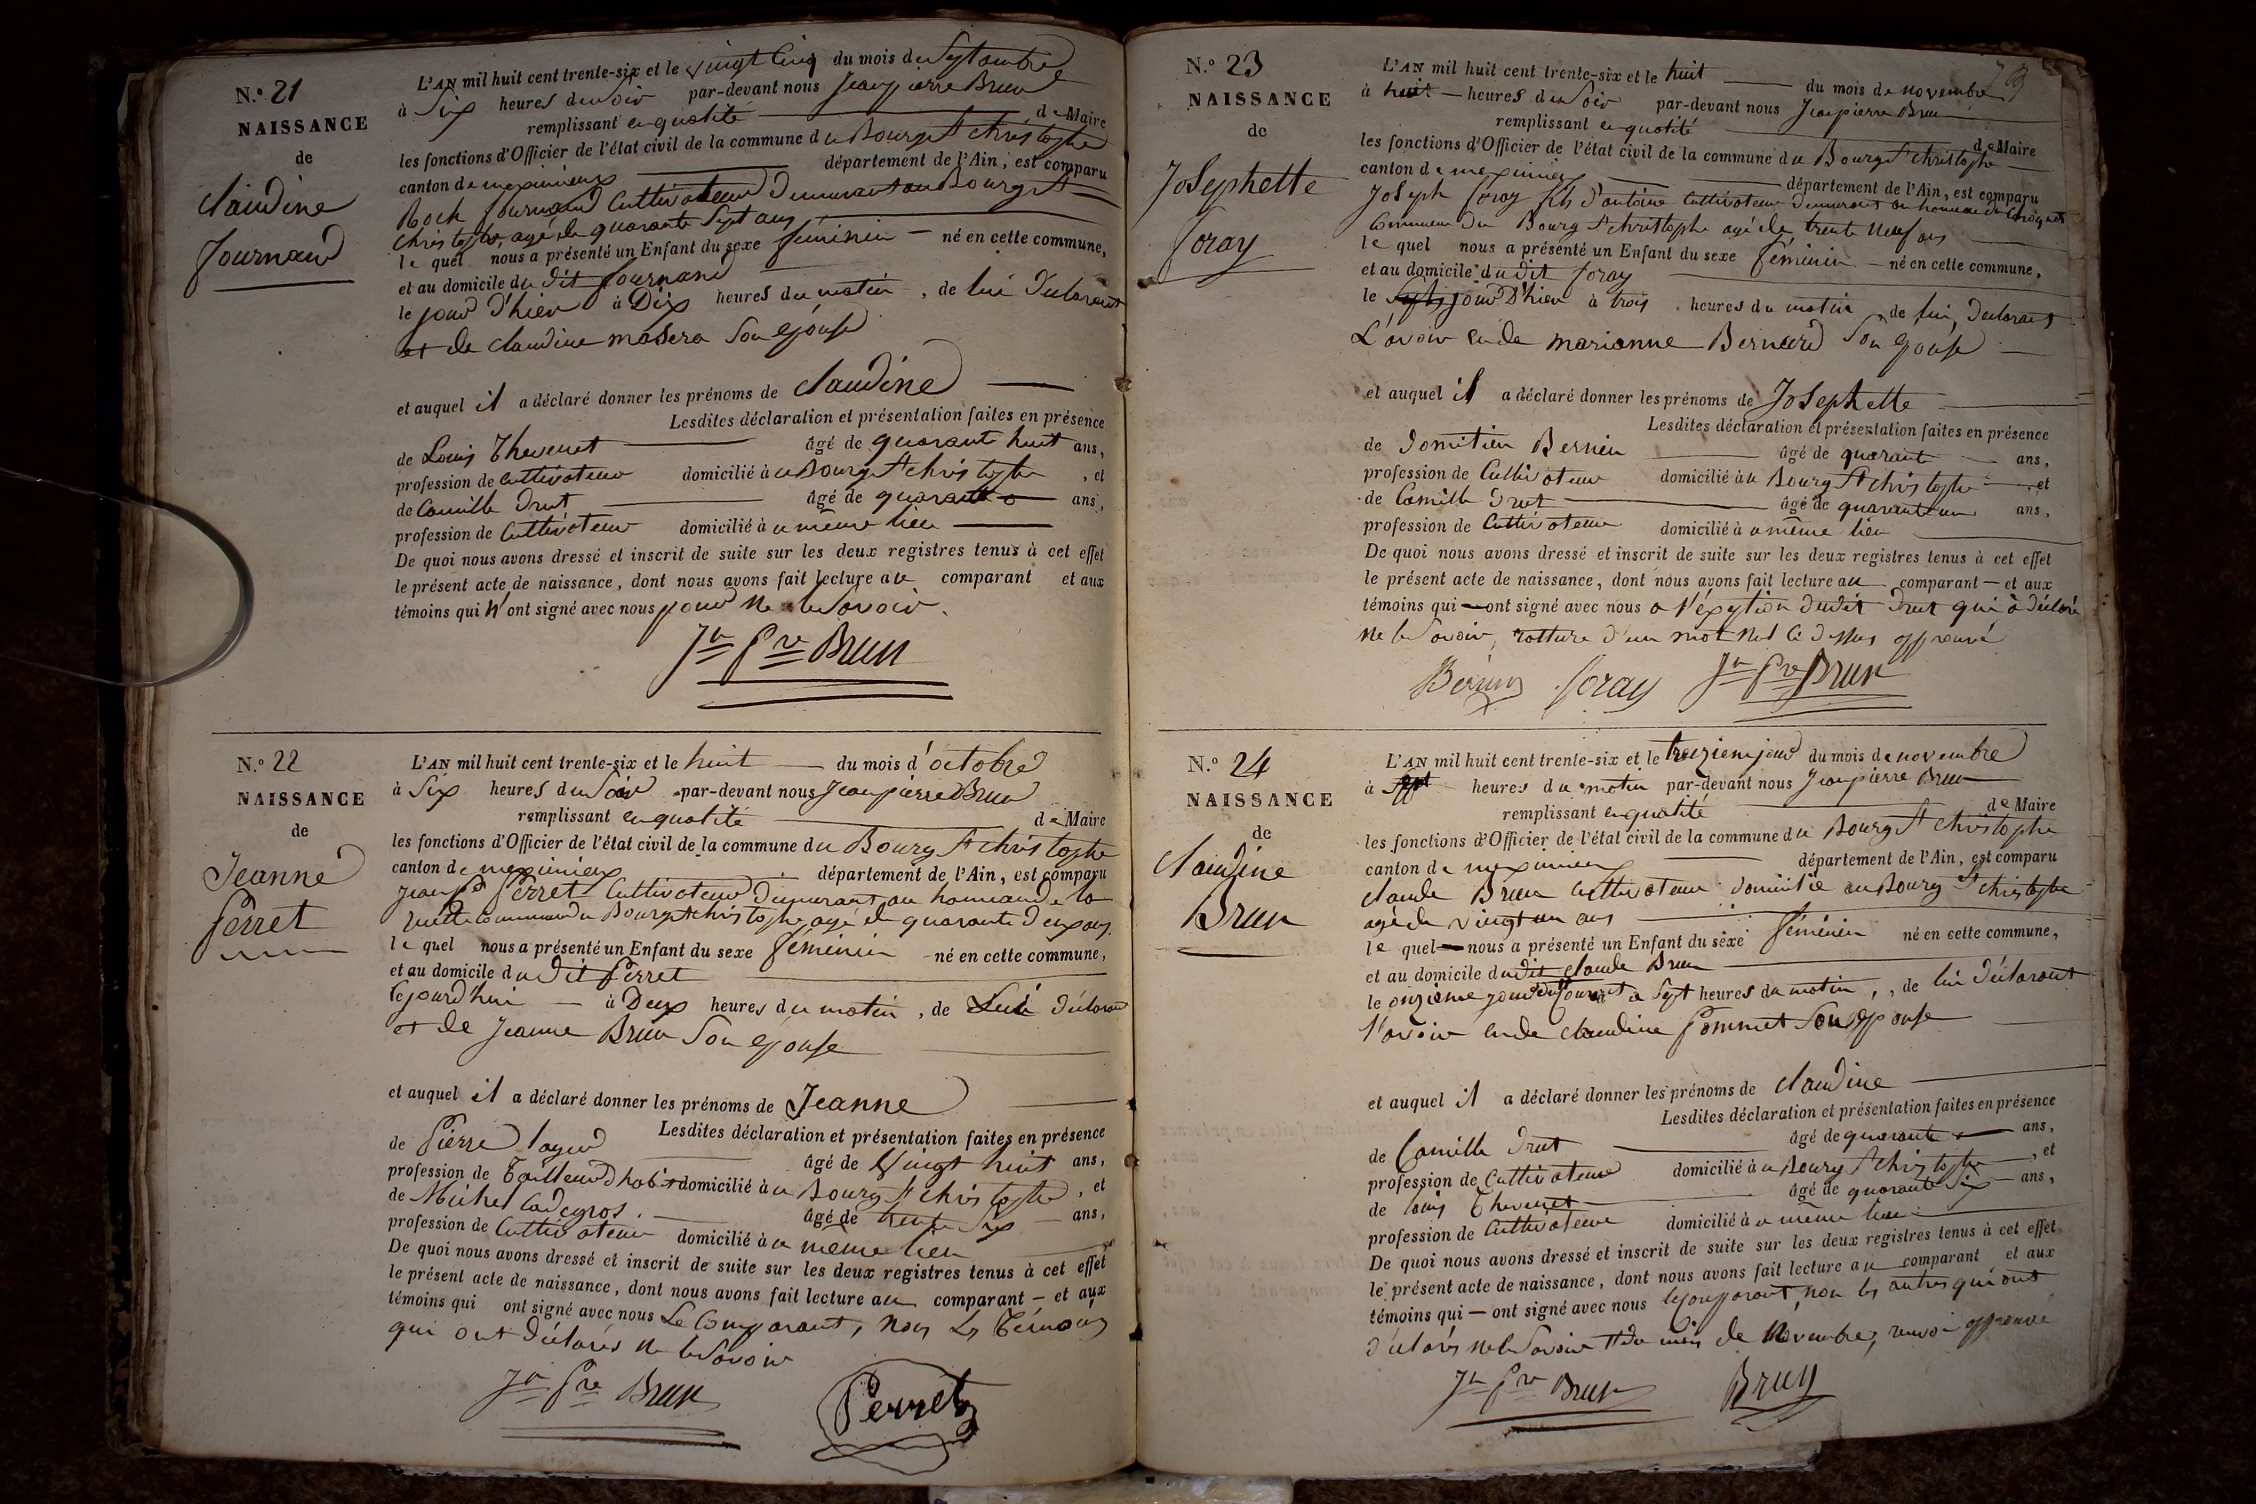 N.º 21
NAISSANCE
de
Claudine
Journand
L'AN mil huit cent trente-six et le vingt Cinq du mois de Septembre
à Six heures du Soir par-devant nous Jeanpierre Brun
remplissant en qualité de Maire
les fonctions d'Officier de l'état civil de la commune du Bourg St christophe
canton de meximieux département de l'Ain, est comparu
Roch Journand Cultivateur Demeurant au Bourg St
christophe, agé de quarante Sept ans
le quel nous a présenté un Enfant du sexe féminin né en cette commune,
et au domicile du dit Journand
le jour d'hier à Dix heures du matin, de lui Déclarant
et de claudine masera Son épouse
et auquel il a déclaré donner les prénoms de claudine
Lesdites déclaration et présentation faites en présence
de Louis Thevenet âgé de quarante huit ans,
profession de Cultivateur domicilié à u Bourg St christophe, et
de Camille Drut âgé de quarante ans,
profession de Cultivateur domicilié à u même lieu
De quoi nous avons dressé et inscrit de suite sur les deux registres tenus à cet effet
le présent acte de naissance, dont nous avons fait lecture au comparant et aux
témoins qui n'ont signé avec nous pour ne le Savoir.
Jn Pre Brun
N.º 22
NAISSANCE
de
Jeanne
Perret
L'AN mil huit cent trente-six et le huit du mois d'octobre
à Six heures du Soir par-devant nous Jeanpierre Brun
remplissant en qualité de Maire
les fonctions d'Officier de l'état civil de la commune du Bourg St christophe
canton de meximieux département de l'Ain, est comparu
Perret Cultivateur Demeurant au hameau de la
commune du Bourg St christophe, agé de quarante Deux ans.
le quel nous a présenté un Enfant du sexe féminin né en cette commune,
et au domicile du dit Perret
le jourd'hui à Deux heures du matin, de Lui Déclarant
et de Jeanne Brun Son épouse
et auquel il a déclaré donner les prénoms de Jeanne
Lesdites déclaration et présentation faites en présence
de Pierre âgé de Vingt huit ans,
profession de Tailleur d'habit domicilié à u Bourg St christophe, et
de Michel âgé de trente Six ans,
profession de Cultivateur domicilié à u même lieu
De quoi nous avons dressé et inscrit de suite sur les deux registres tenus à cet effet
le présent acte de naissance, dont nous avons fait lecture au comparant et aux
témoins qui ont signé avec nous Le Comparant, Non Les Témoins
qui ont Déclarés ne le Savoir
Jn Pre Brun Perret
N.º 23
NAISSANCE
de
Josephette
foray
L'AN mil huit cent trente-six et le huit du mois de novembre
à huit heures du Soir par-devant nous Jeanpierre Brun
remplissant en qualité de Maire
les fonctions d'Officier de l'état civil de la commune du Bourg St christophe
canton de meximieux département de l'Ain, est comparu
Joseph foray fils d'antoine Cultivateur Demeurant au hameau de
Commune du Bourg St christophe agé de trente neuf ans
le quel nous a présenté un Enfant du sexe féminin né en cette commune,
et au domicile du dit foray
le jour D'hier à trois heures du matin de lui, Déclarant
L'avoir eu de marianne Bernard Son épouse
et auquel il a déclaré donner les prénoms de Josephette
Lesdites déclaration et présentation faites en présence
de Domitien Bernin âgé de quarante ans,
profession de Cultivateur domicilié à u Bourg St christophe et
de Camille Drut âgé de quarante un ans,
profession de Cultivateur domicilié à u même lieu
De quoi nous avons dressé et inscrit de suite sur les deux registres tenus à cet effet
le présent acte de naissance, dont nous avons fait lecture au comparant et aux
témoins qui ont signé avec nous a l'éxeption dudit Drut qui à déclaré
ne le Savoir, rature d'un mot nul ci dessus approuvé
Bernin foray Jn Pre Brun
N.º 24
NAISSANCE
de
claudine
Brun
L'AN mil huit cent trente-six et le treizieme jour du mois de novembre
à sept heures du matin par-devant nous Jeanpierre Brun
remplissant en qualité de Maire
les fonctions d'Officier de l'état civil de la commune du Bourg St christophe
canton de meximieux département de l'Ain, est comparu
claude Brun Cultivateur Domicilié au Bourg St christophe
agé de vingt un ans
le quel nous a présenté un Enfant du sexe féminin né en cette commune,
et au domicile du dit claude Brun
le onzieme jour du Courant à Sept heures du matin, de lui Déclarant
l'avoir eu de claudine Pommet Son épouse
et auquel il a déclaré donner les prénoms de claudine
Lesdites déclaration et présentation faites en présence
de Camille Drut âgé de quarante ans,
profession de Cultivateur domicilié à u Bourg St christophe, et
de louis Thevenet âgé de quarante Six ans,
profession de Cultivateur domicilié à u même lieu
De quoi nous avons dressé et inscrit de suite sur les deux registres tenus à cet effet
le présent acte de naissance, dont nous avons fait lecture au comparant et aux
témoins qui ont signé avec nous le comparant, non les autres qui ont
Déclarés ne le Savoir du mois de Novembre, renvoi approuvé
Jn Pre Brun Brun